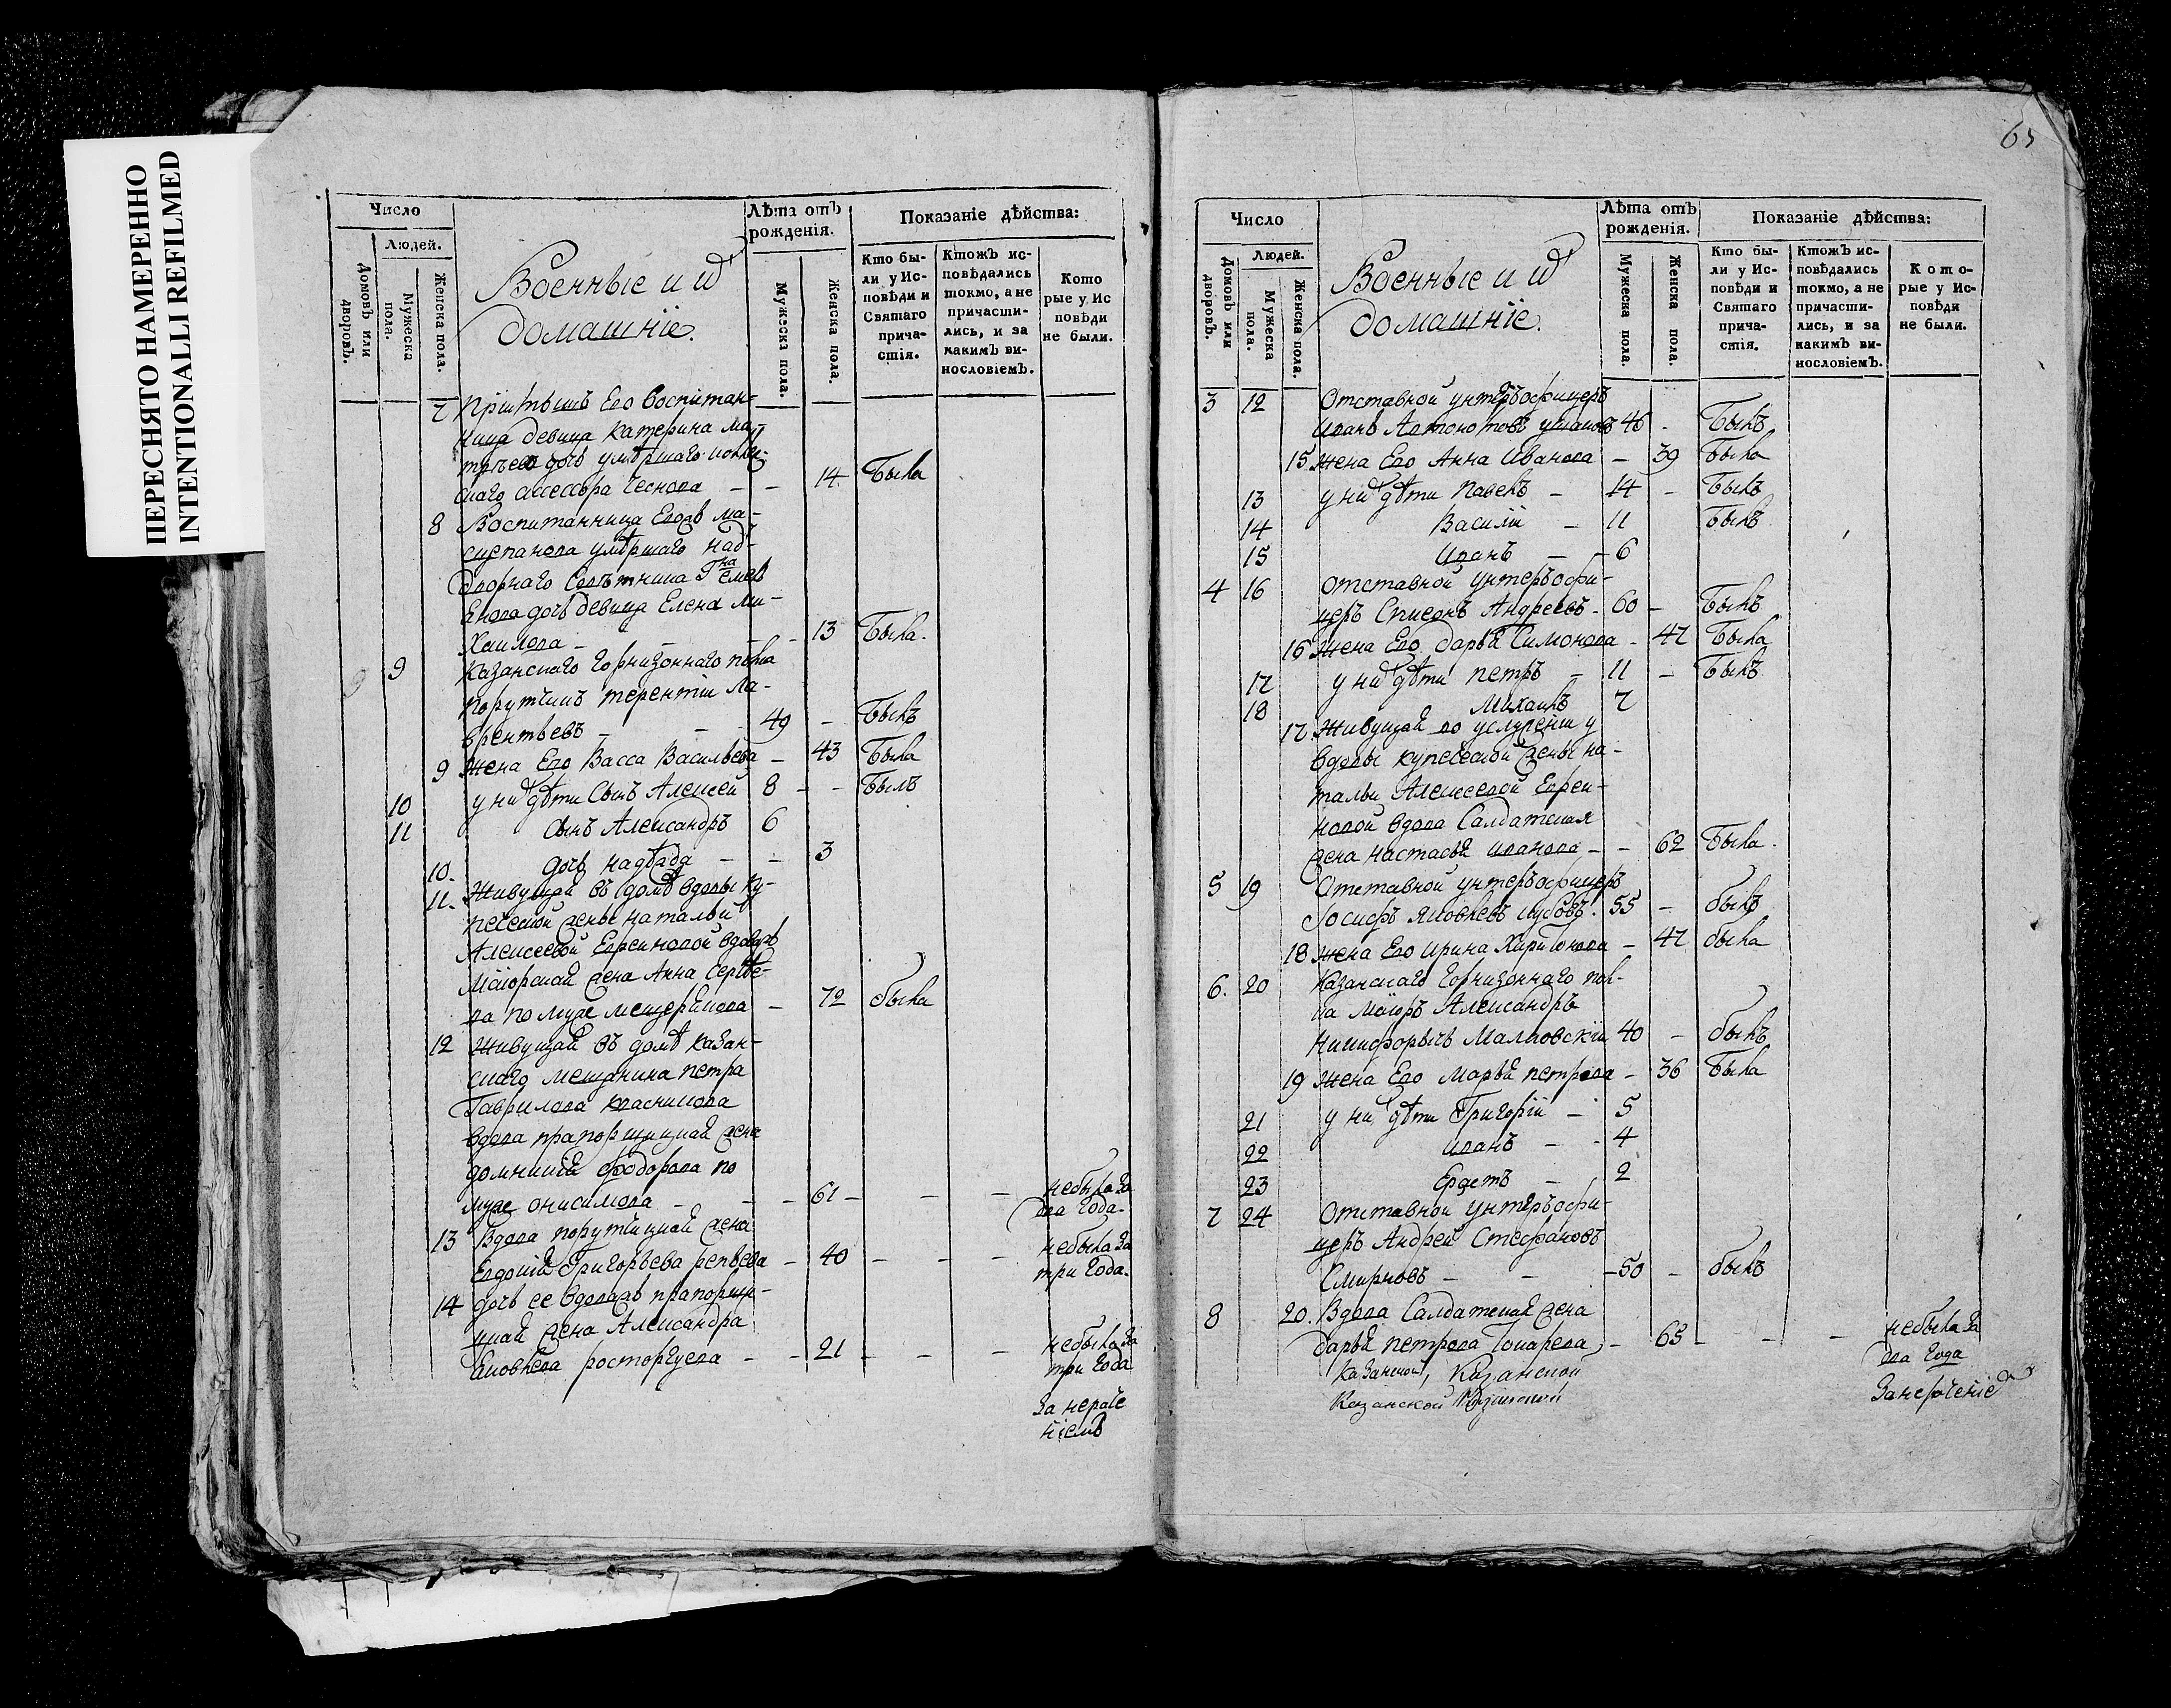 ПЕРЕСНЯТО НАМЕРЕННО
INTENTIONALLI REFILMED
Число
Людей.
Домовъ или дворовъ.
Мужеска пола.
Женска пола.
Военные и ихъ
домашніе.
Лѣта отъ рожденія.
Мужеска пола.
Женска пола.
Показаніе дѣйства:
Кто бы-
ли у Ис-
повѣди и
Святаго
прича-
стія.
Ктожъ ис-
повѣдались
токмо, а не
причасти-
лись, и за
какимъ ви-
нословіемъ.
Кото
рые у Ис
повѣди
не были.
7 Его воспитан-
ница девица катерина
дочь умѣршаго
ассессора 14 Была
8 Воспитанница
умѣршаго над-
ворнаго
дочь девица Елена Ми-
хаилова 13 Была.
9 Казанскаго горнизоннаго полка
порутчикъ терентіи Ла-
врентьевъ 49 - Былъ
9 Жена Его Васса Васильева - 43 Была
10 у нихъ дѣти Сынъ Алексей 8 - - Былъ
11 сынъ Александръ 6
10. дочь надѣжда - - 3
11. Живущая въ домѣ вдовы ку-
печеской жены натальи
Алексеевой вдова
Маіорская жена Анна Сергѣе-
ва по муже мещерякова - 72 была
12 Живущая въ домѣ казан-
скаго мещанина петра
Гаврилова
вдова прапорщицкая жена
домникія феодорова по
муже онисимова - - 61 - - - небыла за
два года.
13 Вдова порутчицкая жена
Евдокія Григорьева - 40 - - - небыла за
три года.
14 дочь ее вдова прапорщи-
цкая жена Александра
Яковлева росторгуева - - 21 - - - небыла за
три года
За нераче
ніемъ
65
Число
Людей.
Домовъ или дворовъ.
Мужеска пола.
Женска пола.
Военные и ихъ
домашніе.
Лѣта отъ рожденія.
Мужеска пола.
Женска пола.
Показаніе дѣйства:
Кто бы-
ли у Ис-
повѣди и
Святаго
прича-
стія.
Ктожъ ис-
повѣдались
токмо, а не
причасти-
лись, и за
какимъ ви-
нословіемъ.
Кото-
рые у Ис-
повѣди
не были.
3 12 Отставной унтеръофицеръ
Иванъ 46 - Былъ
15 Жена Его Анна Иванова - 39 Была
13 у нихъ дѣти Павелъ - 14 - Былъ
14 Василіи - 11 Былъ
15 Иванъ - - 6
4 16 Отставной унтеръофи-
церъ Андреевъ - 60 - Былъ
16 Жена Его дарья Симонова - 47 Была
17 у нихъ дѣти петръ - 11 - Былъ
18 Михаилъ 7
17. Живущая во услуженіи у
вдовы купеческой жены на-
тальи Алексеевой
вдова Салдатская
жена настасья иванова - - 62 Была.
5 19 Отставной унтеръофицеръ
Іосифъ Яковлевъ 55 - былъ
18 Жена Его Ирина Харитонова - 47 была
6. 20 Казанскаго горнизоннаго пол-
ка Маіоръ Александръ
Никифорычъ 40 - былъ
19 Жена Его Марья петрова - 36 Была
21 у нихъ дѣти Григорій - 5
22 иванъ - - 4
23 - 2
7 24 Отставной унтеръофи-
церъ Андрей Стефановъ
Смирновъ - - - 50 - былъ
8 20. Вдова Салдатская жена
дарья петрова - 65 - - - небыла за
два года
За нераченіемъ
Казанской, Казанской
Казанской Казанской